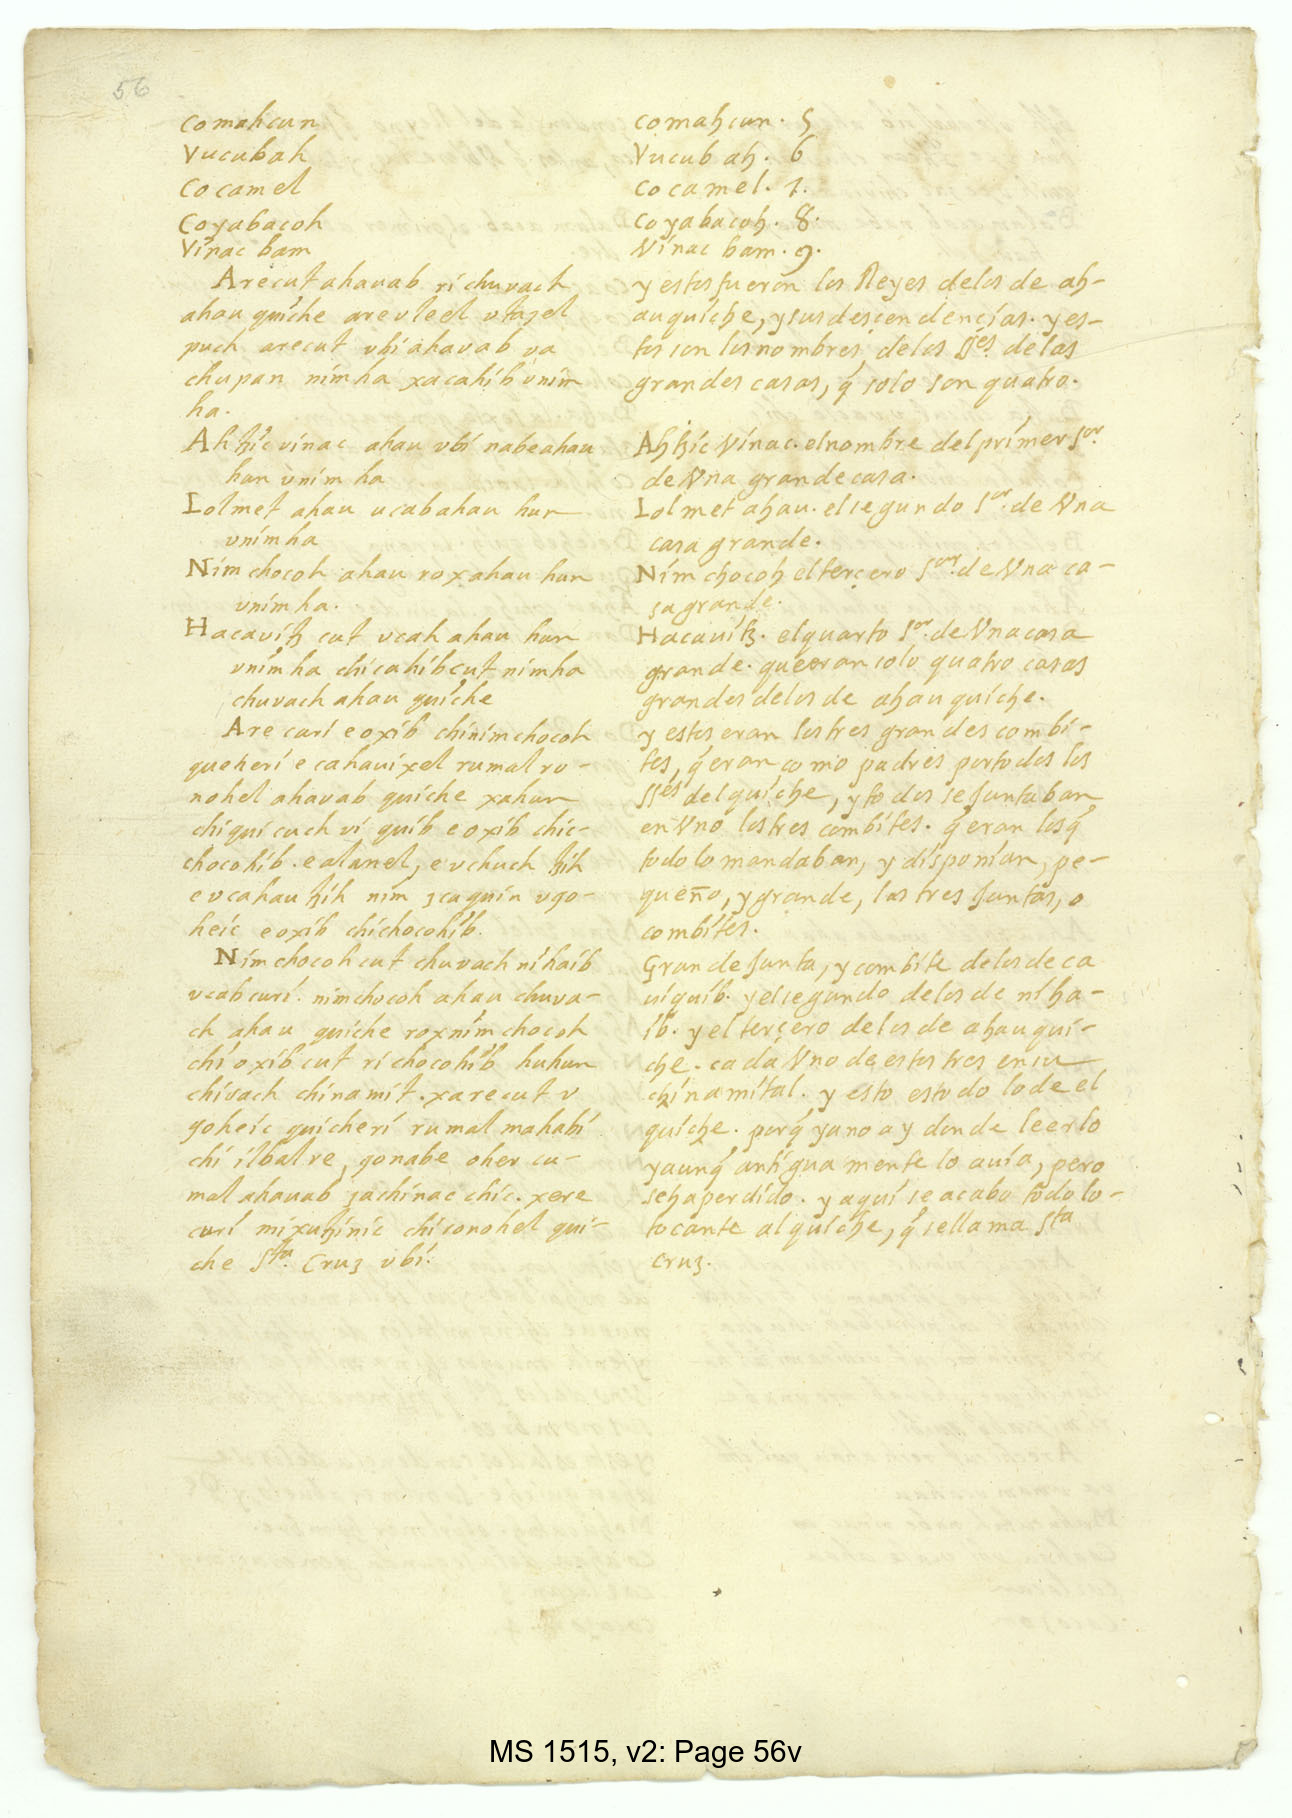 56
comahcun
Vucubah
Cocamel
Coyabacoh
Vinac bam
Arecut ahauab ri chuvach
ahau quiche are vleel vtazel
puch arecut vbi ahavab va
chupan nimha xacahib vnim
ha.
Ahtzic vinac ahau vbi nabe ahau
hun vnim ha
Lolmet ahau ucab ahau hun
vnimha
Nimchocoh ahau roxahau hun
vnimha.
Hacavitz cut vcah ahau hun
vnimha chi cahib cut nimha
chuvach ahau quiche
Are curi e oxib chi nimchocoh
queheri e cahauixel rumal ro-
nohel ahavab quiche xahun
chiqui cuch vi quib e oxib chic-
chocohib. e alanel, e vchuch tzih
e vcahau tzih nim zcaquin vgo-
heic e oxib chi chocohib.
Nimchocoh cut chuvach nihaib
vcab curi. nimchocoh ahau chuva-
ch ahau quiche rox nimchocoh
chi oxib cut ri chocohib huhun
chivach chinamit. xarecut v
goheic quiche ri rumal mahabi
chi ilbal re, go nabe oher cu-
mal ahauab zachinac chic. xere
curi mixutzinic chiconohel qui-
che Sta. Cruz vbi.
comahcun. 5
Vucub ah. 6
cocamel. 7.
coyabacoh. 8.
Vinac bam. 9.
y estos fueron los Reyes delos de ah-
au quiche, y sus descendencias. y es-
tos son los nombres delos SSes. de las
grandes casas, q̃ solo son quatro.
Ahtzic Vinac. el nombre del primer Sor.
de Vna grande casa.
Lolmet ahau. el segundo Sor. de Vna
casa grande.
Nimchocoh el terçero Sor. de Vna ca-
sa grande.
Hacauitz. el quarto Sor. de Vna casa
grande. que eran solo quatro casas
grandes delos de ahau quiche.
y estos eran los tres grandes combi-
tes, q̃ eran como padres por todos los
SSes del quiche, y todos se juntaban
en Vno los tres combites. q̃ eran los q̃
todo lo mandaban, y disponian, pe-
queño, y grande, las tres juntas, o
combites.
Grande junta, y combite delos de ca
uiquib. y el segundo delos de niha-
ib. y el terçero delos de ahau qui-
che. cada Vno de estos tres en su
chinamital. y esto es todo lo de el
quiche. porq̃ ya no ay donde leerlo
y aunq̃ antigua mente lo auia, pero
se ha perdido. y aqui se acabo todo lo-
tocante al quiche, q̃ se llama Sta
Cruz.
MS 1515, v2: Page 56v